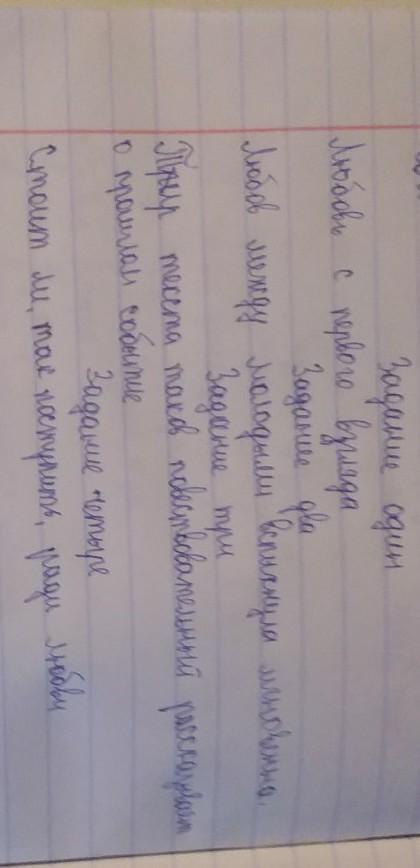 Задание один
Любовь с первого взгляда
Задание два
Любов между молодыми вспыхнула мгновенно.
Задание три
текста таков повествовательный рассказывает
о прошлом событие
Задание четыре
Стоит ли, так поступить, ради любви